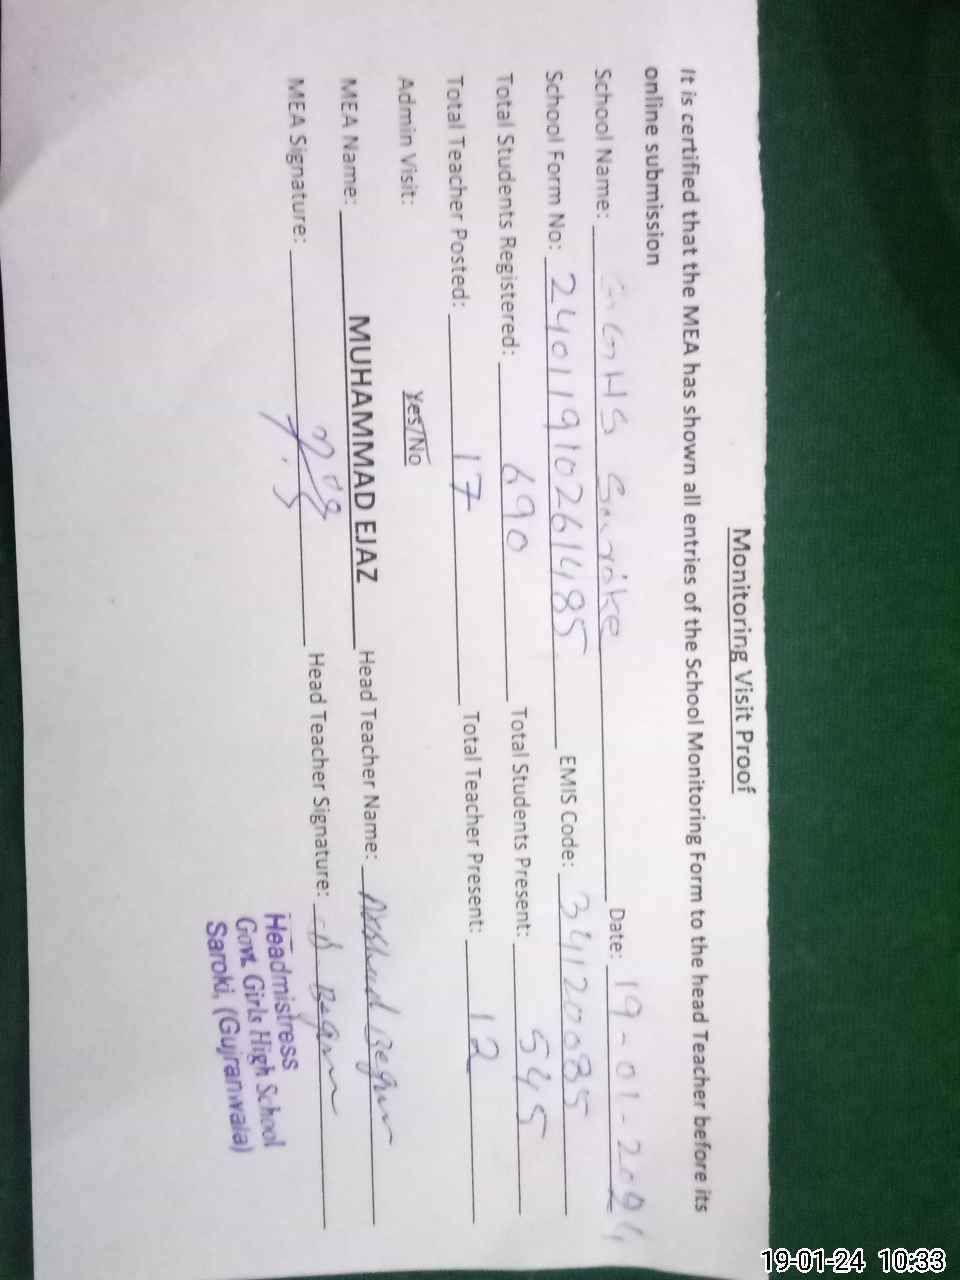 Monitoring Visit Proof
It is certified that the MEA has shown all entries of the School Monitoring Form to the head Teacher before its
online submission
School Name: GGHS Saroke Date: 19-01-2024
School Form No: 24011910261485 EMIS Code: 34120085
Total Students Registered: 690 Total Students Present: 545
Total Teacher Posted: 17 Total Teacher Present: 12
Admin Visit: Yes/No
MEA Name: MUHAMMAD EJAZ Head Teacher Name: Arshad Begum
MEA Signature: Head Teacher Signature: A Begum
Headmistress
Govt. Girls High School
Saroki, (Gujranwala)
19-01-24 10:33